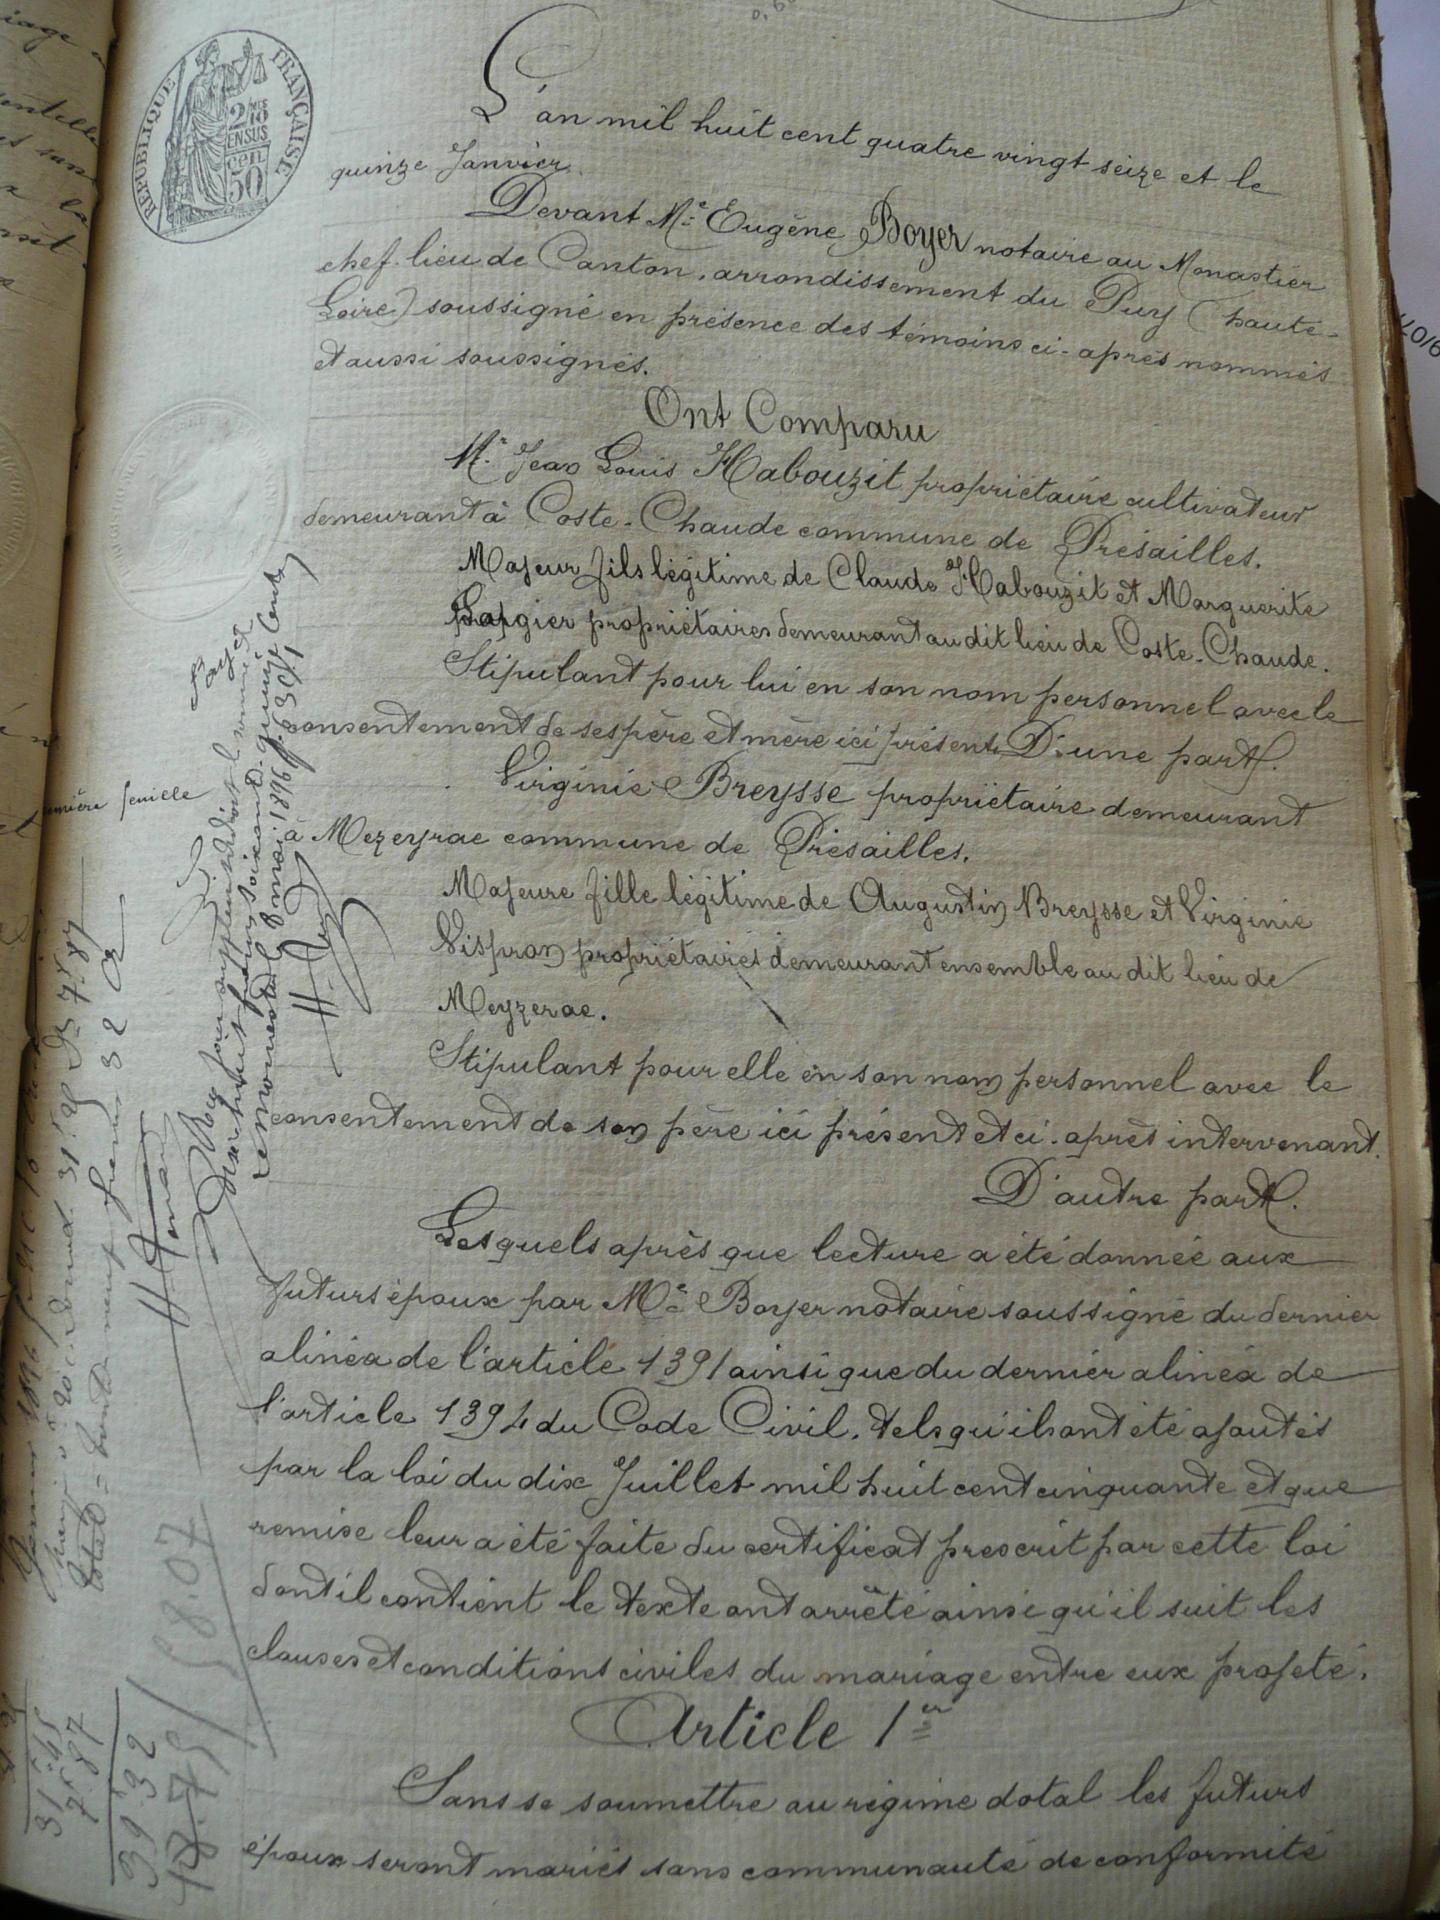 RÉPUBLIQUE FRANÇAISE
2/10
EN SUS
50
L'an mil huit cent quatre vingt seize et le
quinze Janvier.
Devant Me Eugène Boyer notaire au Monastier
chef-lieu de Canton, arrondissement du Puy (haute-
Loire) soussigné en présence des témoins ci-après nommés
et aussi soussignés.
Ont Comparu
Mr Jean Louis Habouzit propriétaire cultivateur
demeurant à Coste-Chaude commune de Présailles.
Majeur fils légitime de Claude Habouzit et Marguerite
propriétaires demeurant au dit lieu de Coste-Chaude.
Stipulant pour lui en son nom personnel avec le
consentement de ses père et mère ici présents D'une part.
Virginie Breysse propriétaire demeurant
à Mezeyrac commune de Présailles.
Majeure fille légitime de Augustin Breysse et Virginie
Vispron propriétaires demeurant ensemble au dit lieu de
Meyzerac.
Stipulant pour elle en son nom personnel avec le
consentement de son père ici présent et ci-après intervenant.
D'autre part.
Lesquels après que lecture a été donnée aux
futurs époux par Me Boyer notaire soussigné du dernier
alinéa de l'article 1391 ainsi que du dernier alinéa de
l'article 1394 du Code Civil, tels qu'ils ont été ajoutés
par la loi du dix Juillet mil huit cent cinquante et que
remise leur a été faite du certificat prescrit par cette loi
dont il contient le texte ont arrêté ainsi qu'il suit les
clauses et conditions civiles du mariage entre eux projeté.
Article 1er
Sans se soumettre au régime dotal les futurs
époux seront mariés sans communauté de conformité
feuille
58.07
31.45
7.87
39.32